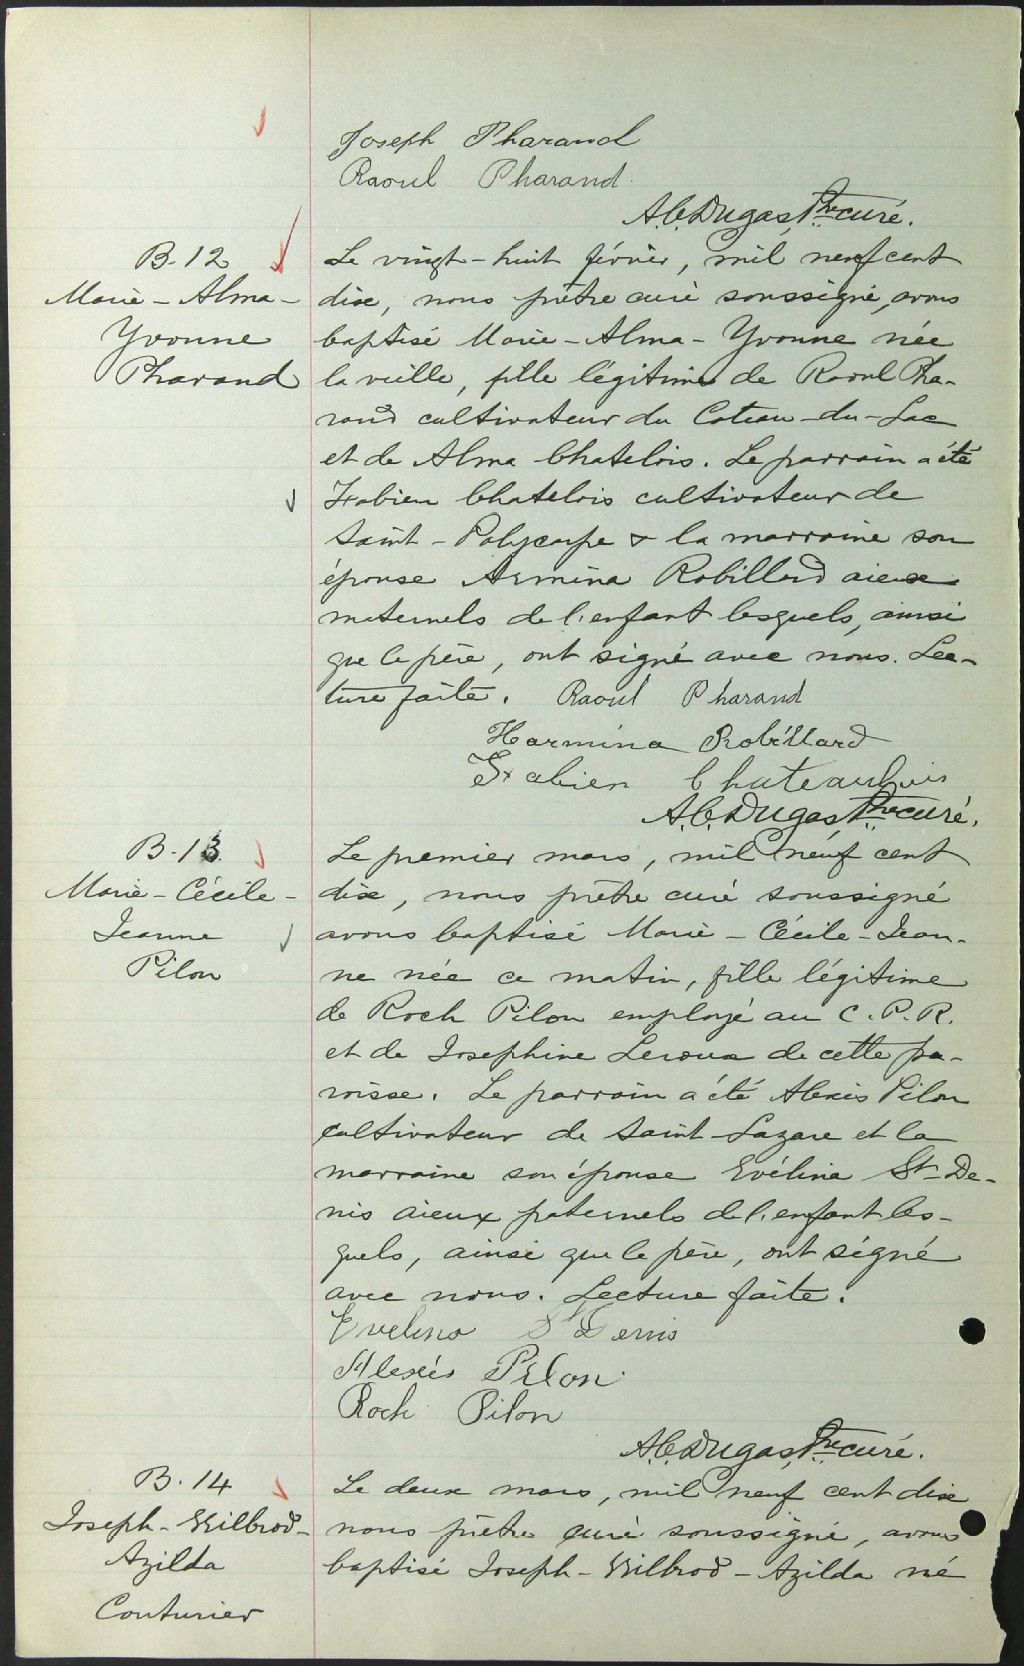 Joseph Pharand
Raoul Pharand.
A.C. Dugas, Ptre curé.
B. 12
Marie - Alma -
Yvonne
Pharand
Le vingt-huit février, mil neuf cent
dix, nous prêtre curé soussigné, avons
baptisé Marie - Alma - Yvonne née
la veille, fille légitime de Raoul Pha-
rand cultivateur du Coteau-du-Lac
et de Alma Chatelois. Le parrain a été
Fabien Chatelois cultivateur de
Saint-Polycarpe & la marraine son
épouse Armina Robillard aieux
maternels de l'enfant lesquels, ainsi
que le père, ont signé avec nous. Lec-
ture faite. Raoul Pharand
Harmina Robillard
Fabien Chateaubois
A.C. Dugas Ptre curé.
B. 13
Marie - Cécile -
Jeanne
Pilon
Le premier mars, mil neuf cent
dix, nous prêtre curé soussigné
avons baptisé Marie - Cécile - Jean-
ne née ce matin, fille légitime
de Roch Pilon employé au C. P. R.
et de Josephine Leroux de cette pa-
roisse. Le parrain a été Alexis Pilon
cultivateur de Saint-Lazare et la
marraine son épouse Evélina St-De-
nis aieux paternels de l'enfant les-
quels, ainsi que le père, ont signé
avec nous. Lecture faite.
Evelina St Denis
Alexis Pilon
Roch Pilon
A.C. Dugas, Ptre curé.
B. 14
Joseph - Wilbrod -
Azilda
Couturier
Le deux mars, mil neuf cent dix
nous prêtre curé soussigné, avons
baptisé Joseph - Wilbrod - Azilda né